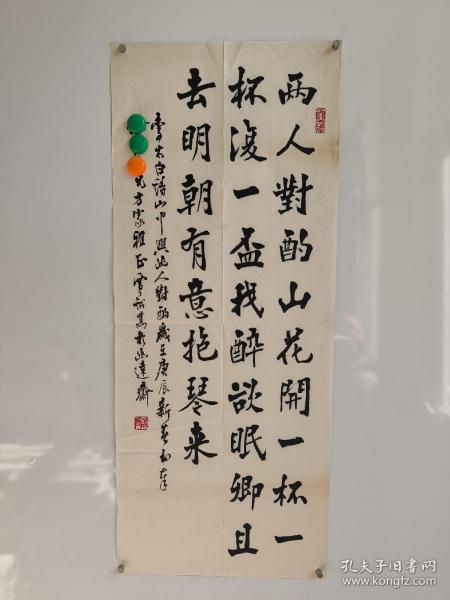 两人對酌山花開一杯一
杯復一盃我醉欲眠卿且
去明朝有意抱琴来
李太白詩山中與幽人對酌歲在庚辰新春書奉
兄方家雅正雪
於遠齋
孔夫子旧书网
www.kongfz.com